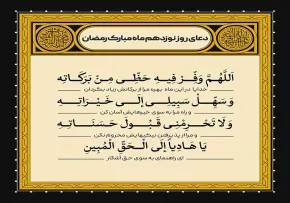 دعای روز نوزدهم ماه مبارک رمضان
اَللّهُمَّ وَفِّر فیهِ حَظّی مِنْ بَرَکاتِهِ
خدایا در این ماه بهره مرا از برکاتش زیاد بگردان
وَ سَهِّلْ سَبیلی إِلی خَیْراتِهِ
و راه مرا به سوی خیرهایش آسان کن
وَلا تَحْرِمْنی قَبُولَ حَسَناتِهِ
و مرا از پذیرفتن نیکیهایش محروم نکن
یا هادِیاً إِلَی الْحَقِّ الْمُبینِ
ای راهنمای به سوی حق آشکار